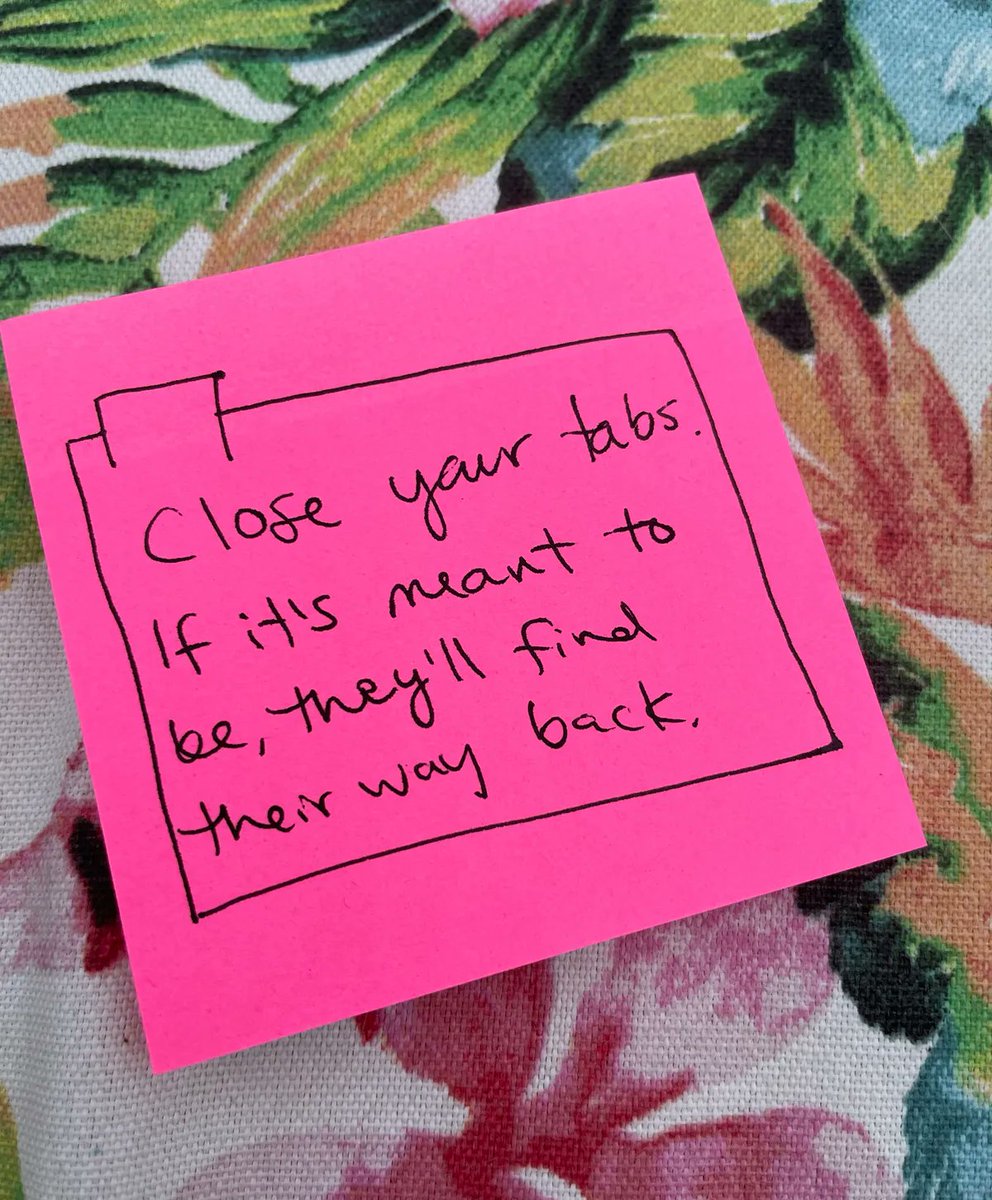 Close your tabs.
If it's meant to
be, they'll find
their way back.